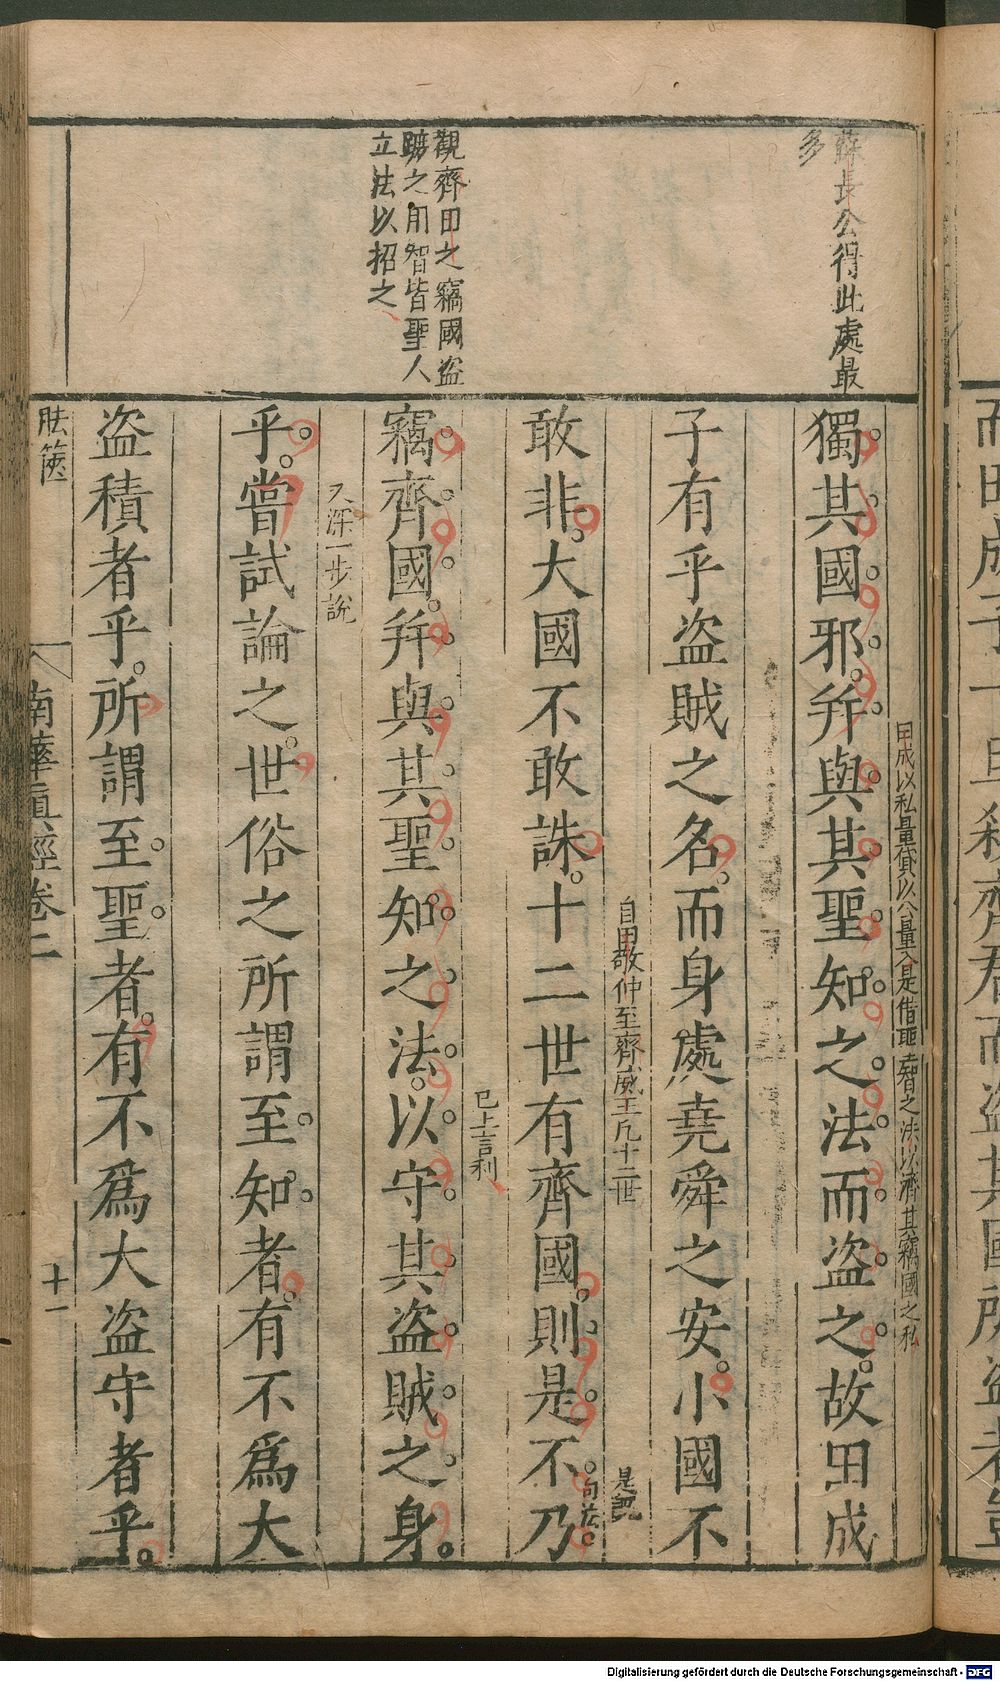 蘇長公得此處最
多
觀齊田之竊國盜
蹠之用智皆聖人
立法以招之
田成以私量貸以公量入是借聖知之法以濟其竊國之私
獨其國邪。并與其聖知之法而盜之。故田成
子有乎盜賊之名。而身處堯舜之安。小國不
自田敬仲至齊威王凡十二世
敢非。大國不敢誅。十二世有齊國。則是不乃
句法
巳上言利
竊齊國并與其聖知之法。以守其盜賊之身。
又深一步說
乎。嘗試論之。世俗之所謂至知者。有不爲大
盜積者乎。所謂至聖者。有不爲大盜守者乎。
胠篋
南華真經卷二
十一
而田成子一旦殺齊君而盜其國所盜者豈
Digitalisierung gefördert durch die Deutsche Forschungsgemeinschaft - DFG